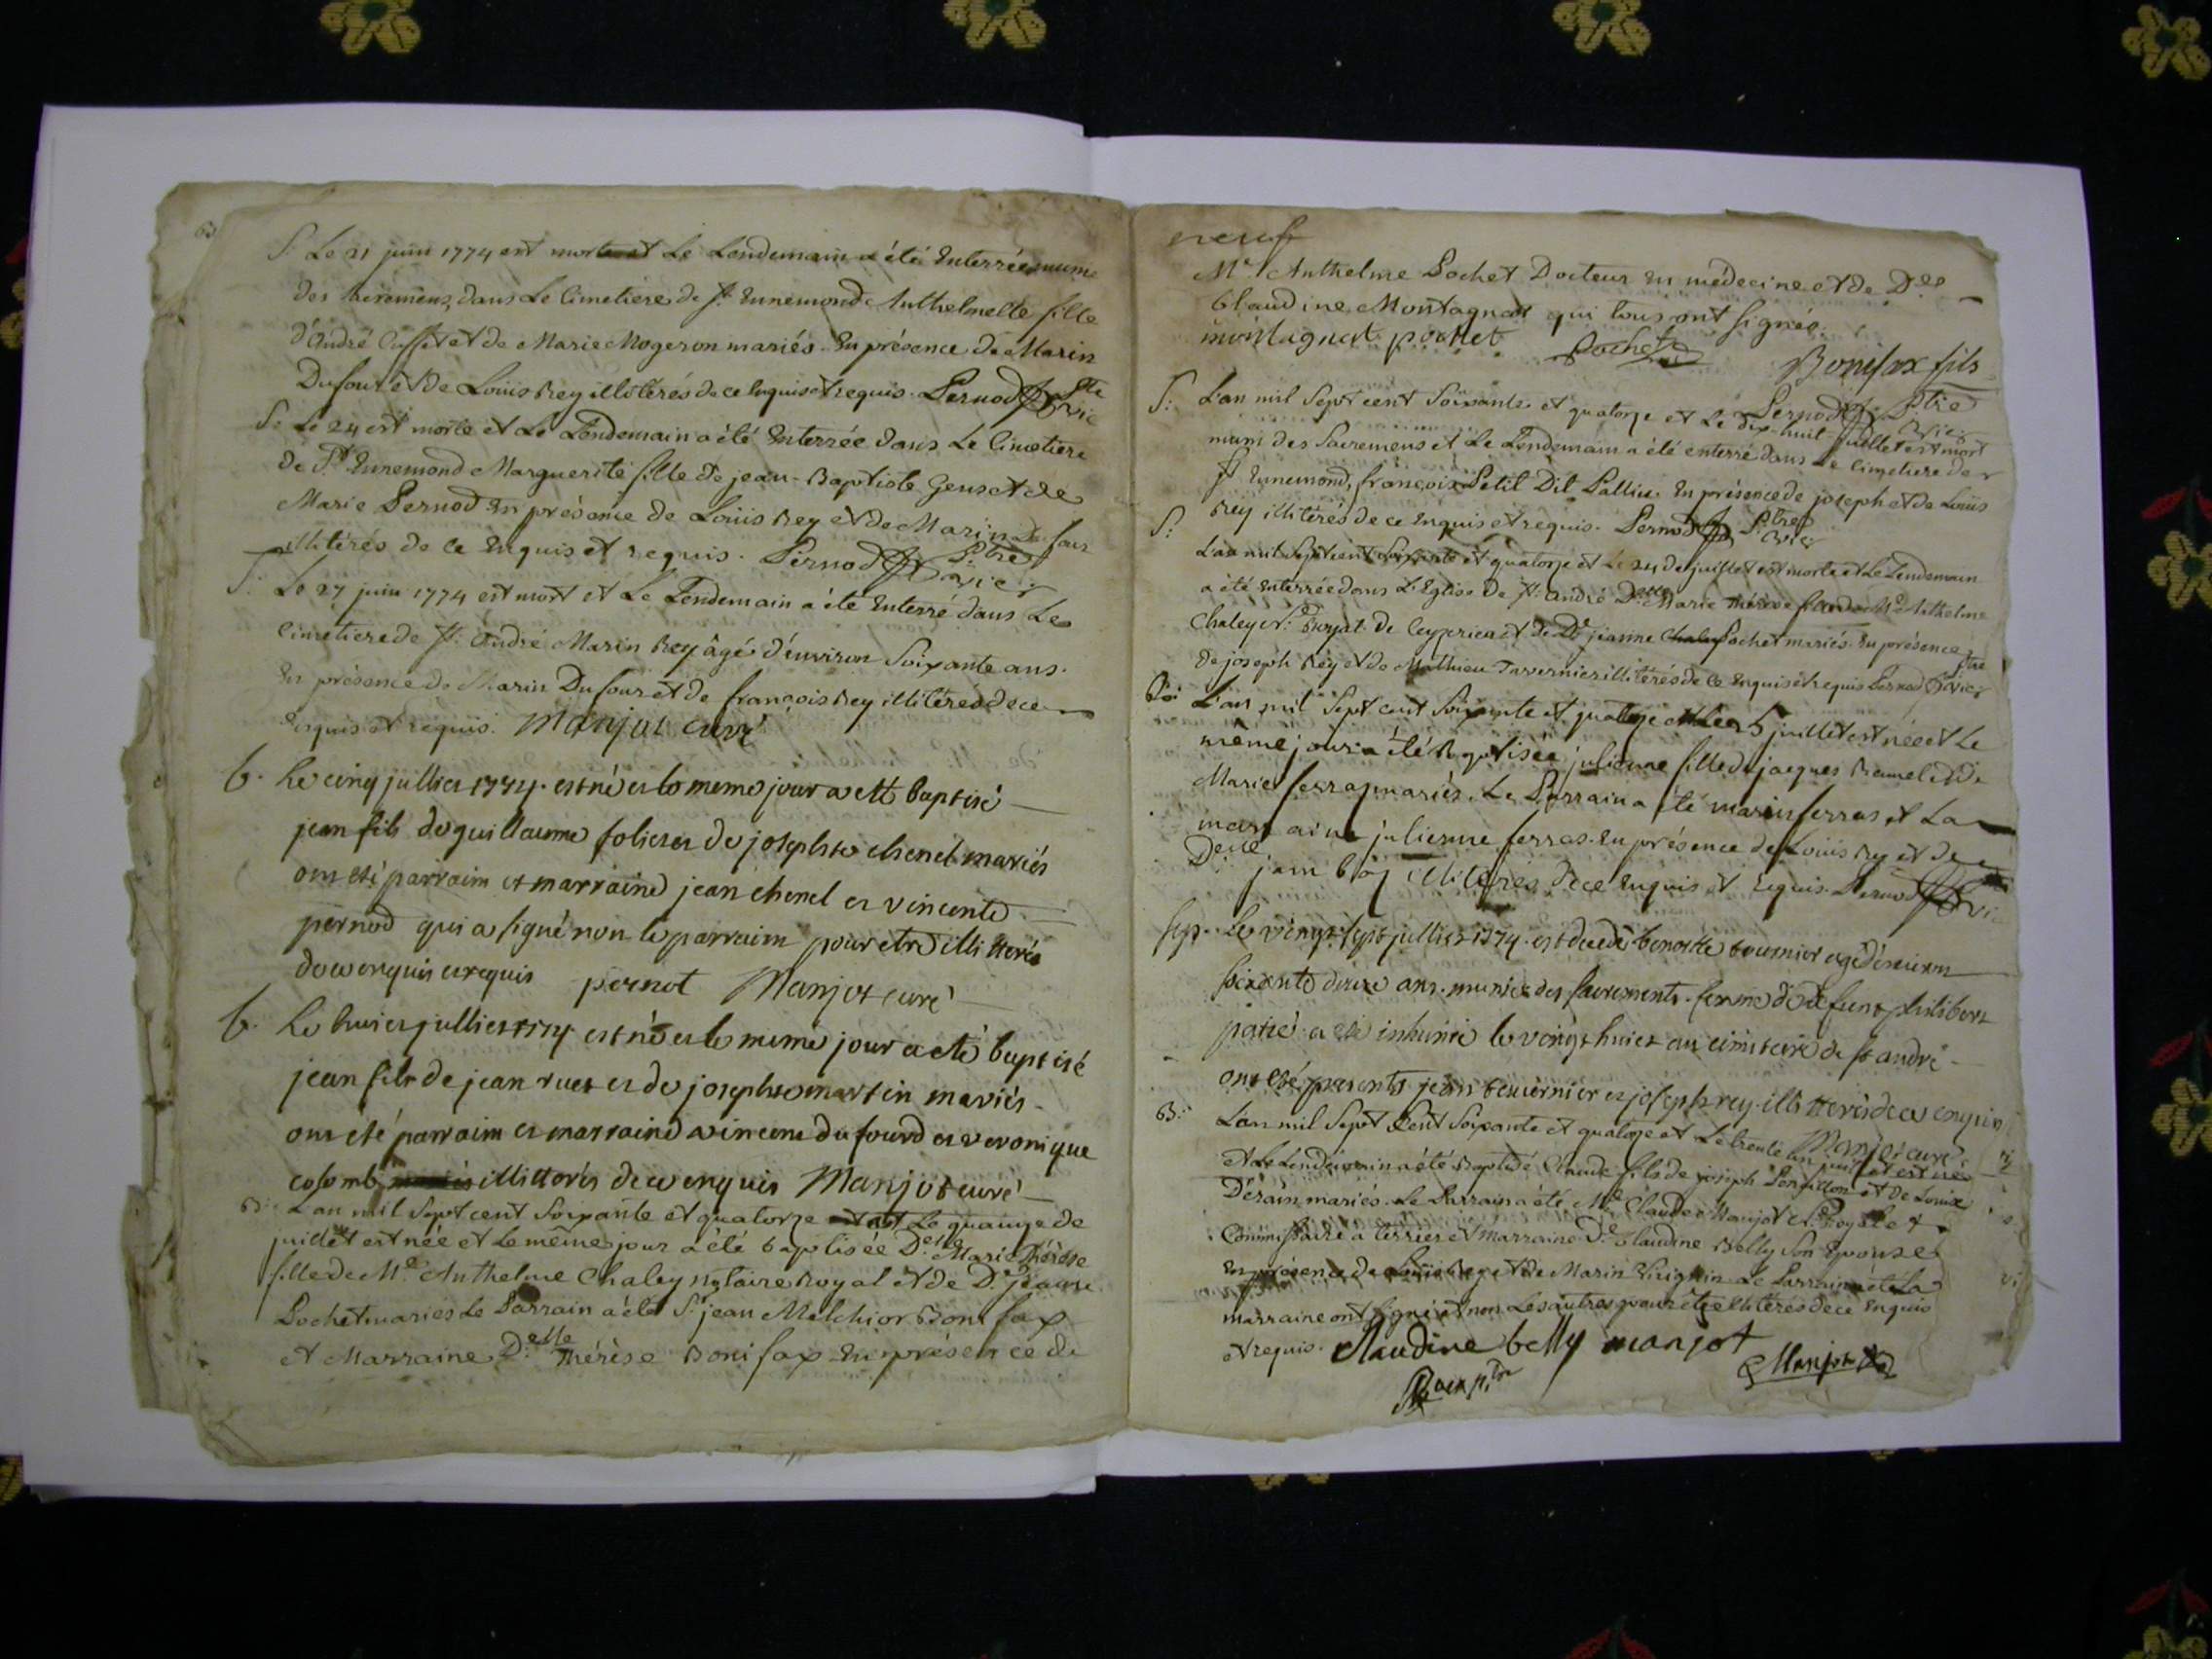 63
S: Le 21 juin 1774 est morte et Le Lendemain a été Enterrée munie
des sacremens, dans Le Cimetiere de St Ennemond Anthelmette fille
d'André Cusset et de Marie Mogeron mariés En présence de Marin
Dufour et de Louis Rey illitérés de ce Enquis et requis. Pernod Ptre vic
S: Le 24 est morte et Le Lendemain a été Enterrée dans Le Cimetiere
de St Ennemond Marguerite fille de jean-Baptiste Gens et de
Marie Pernod En présence de Loüis Rey et de Marin Dufour
illitérés de ce Enquis et requis. Pernod Ptre vic:
S: Le 27 juin 1774 est mort et Le Lendemain a été Enterré dans Le
Cimetiere de St. André Marin Rey âgé d'environ Soixante ans.
En présence de Marin Dufour et de françois Rey illitéres de ce
Enquis et requis. Manjot curé
b. Le cinq jullies 1774. est né es le meme jour a esté baptisé
jean fils de guillaume folies es de josephte chenel mariés
ons esté parraim et marraine jean chenel es vincente
pernod qui a signé non le parraim pour etre illitterés
de ce enquis es requis pernot Manjot curé
b. Le huies jullies 1774 est né es le meme jour a eté baptisé
jean fils de jean rues es de josephte martin mariés
ons eté parraim es marraine vincens dufourd es veronique
colomb illitterés de ce enquis Manjot curé
B: L'an mil Sept cent Soixante et quatorze et Le quinze de
juillet est née et Le même jour a été baptisée Delle Marie Thérèse
fille de Me Anthelme Chaley notaire Royal et de De jeanne
Pochet mariés Le Parrain a été Sr jean Melchior Bonifax
et Marraine Delle Thérèse Bonifax En présence de
neuf
Me Anthelme Pochet Docteur en médecine et de Dlle
Claudine Montagnat qui tous ont signés.
montagnat pochet Pochet Bonifax fils
Pernod Ptre vic:
S: L'an mil Sept cent Soixante et quatorze et Le Dix-huit juillet est mort
muni des Sacremens et Le Lendemain a été enterré dans Le Cimetiere de
St Ennemond, françois Petit Dit Pallieu En présence de joseph et de Louis
Rey illitérés de ce Enquis et requis. Pernod Ptre vic:
S: L'an mil Sept cent Soixante et quatorze et Le 24 de juillet est morte et Le Lendemain
a été Enterrée dans L'Eglise de St. André Delle Marie Thérèse fille de Me Anthelme
Chaley Nre Royal de Ceyzeriat et de De jeanne Pochet mariés En présence
de joseph Rey et de Mathieu Tavernier illitérés de ce Enquis et requis Pernod Ptre vic:
B: L'an mil Sept cent Soixante et quatorze et Le 25 juillet est née et Le
même jour a été Baptisée julienne fille de jacques Ramel et de
Marie ferras mariés. Le Parrain a été marin ferras et La
marraine julienne ferras. En présence de Louis Rey et de
illitérés de ce Enquis et requis. Pernod
sep. Le vingt sept jullies 1774. est decedé benoitte tournier agé d'environ
soixante douze ans. munie des sacrements. femme de defunt philibert
a eté inhumé le vingt huies au cimetaire de st andré
ons eté presents jean tavernier es joseph rey illitterés de ce enquis
Manjot curé
B: L'an mil Sept Cent Soixante et quatorze et Le trente un juillet est né
et Le Lendemain a été Baptisé Claude fils de joseph et de Louise
mariés. Le Parrain a été Me Claude Manjot Nre Royal et
Commissaire a terrier et marraine De Claudine Belly Son Epouse
En présence de Louis Rey et de Marin Le Parrain et La
marraine ont signé et non Les autres pour être illitérés de ce Enquis
et requis. Claudine belly manjot Manjot